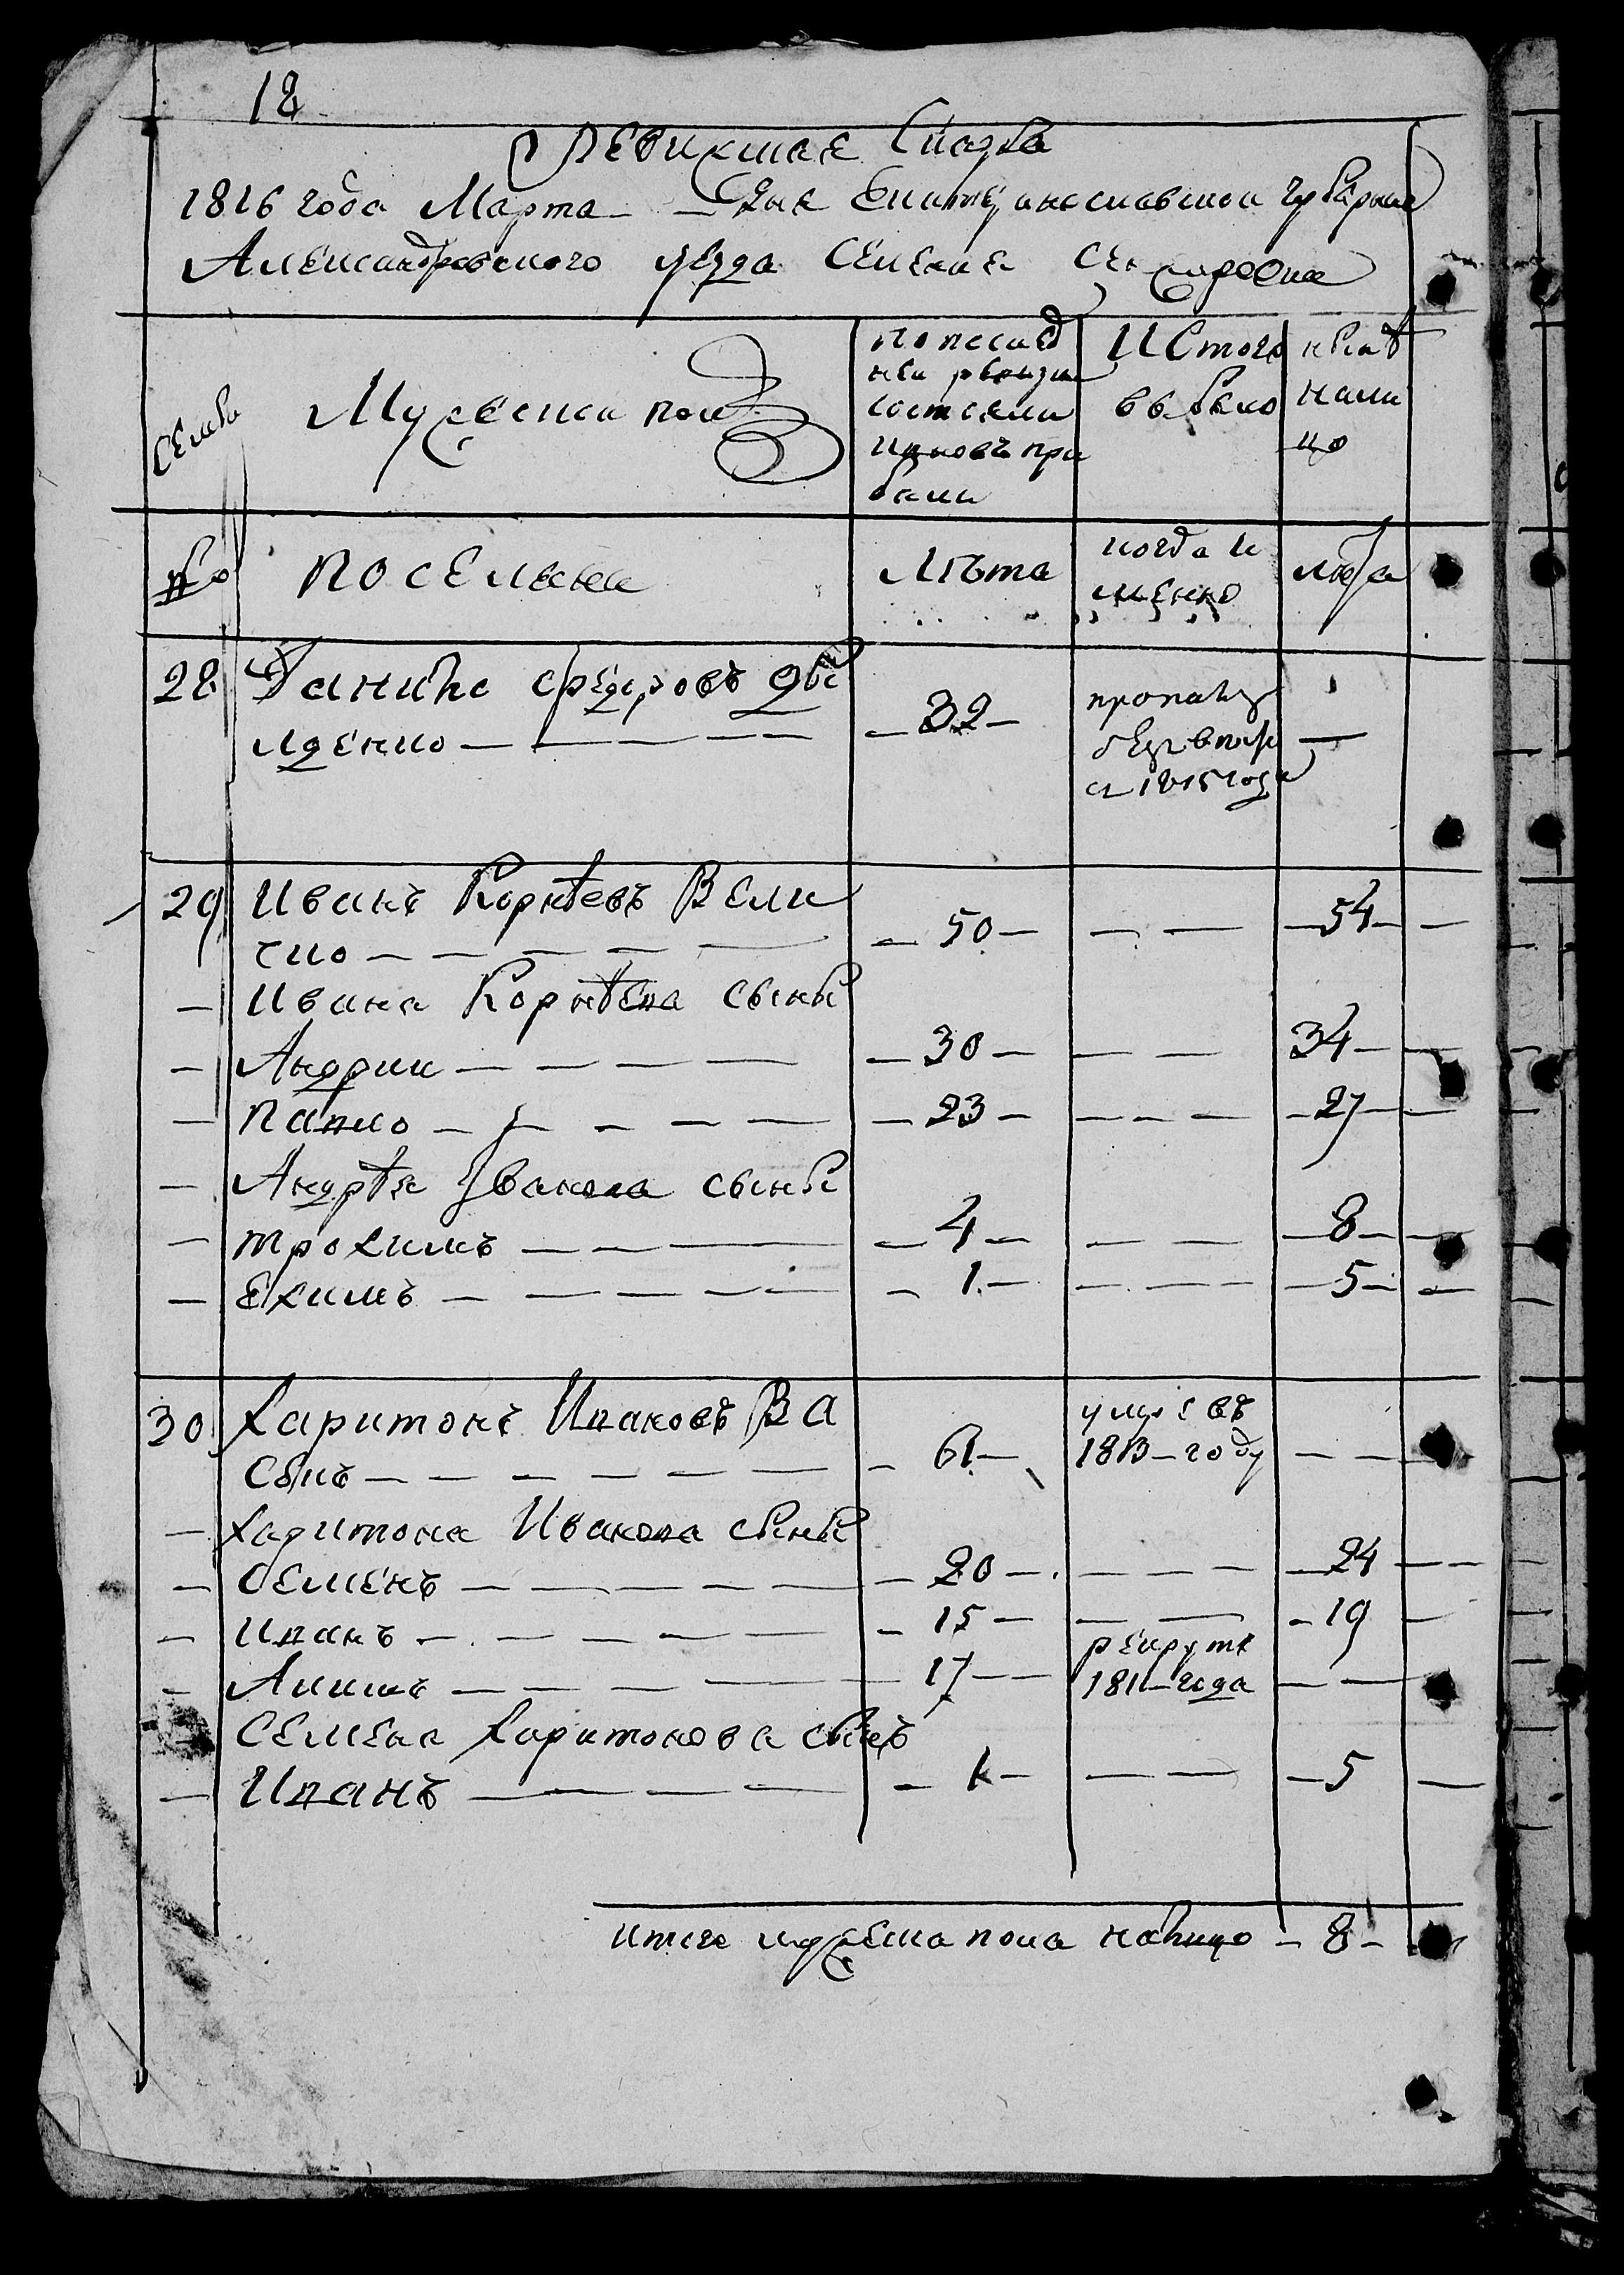 18
Ревижская Сказка
1816 года Марта — — дня Екатеринославской губернии
Александровского уезда Селения
Семьи
Мужеска пол
По послед
ней ревизи
состояли
и оновъ при
были
И Стого
выбыло
ныне
нали
цо
№
поселяне
Лѣта
когда и
менно
лета
28 Данило Федоровъ
иденко — 32 — пропалъ —
безвести
съ 1815 года
29 Иванъ Корнѣевъ Вели
чко — 50 — — — 54 —
— Ивана Корнѣева сыны
— Андрии — 30 — — — 34 —
— Павло — 23 — — — 27 —
— Андрѣя Іванова сыны
— трохимъ — 4 — — — 8 —
— Ехимъ — 1 — — — 5 —
30 Харитонъ Ивановъ Ва
сюкъ — 61 — умре въ
1813 — году — —
— Харитона Иванова сыны
— Семенъ — 20 — — — 24 —
— Иванъ — 15 — — — 19 —
— Акимъ — 17 — рекрутъ
1811 — года — —
Семена Харитонова сынъ
— Иванъ — 1 — — — 5 —
итого мужеска пола налицо — 8 —